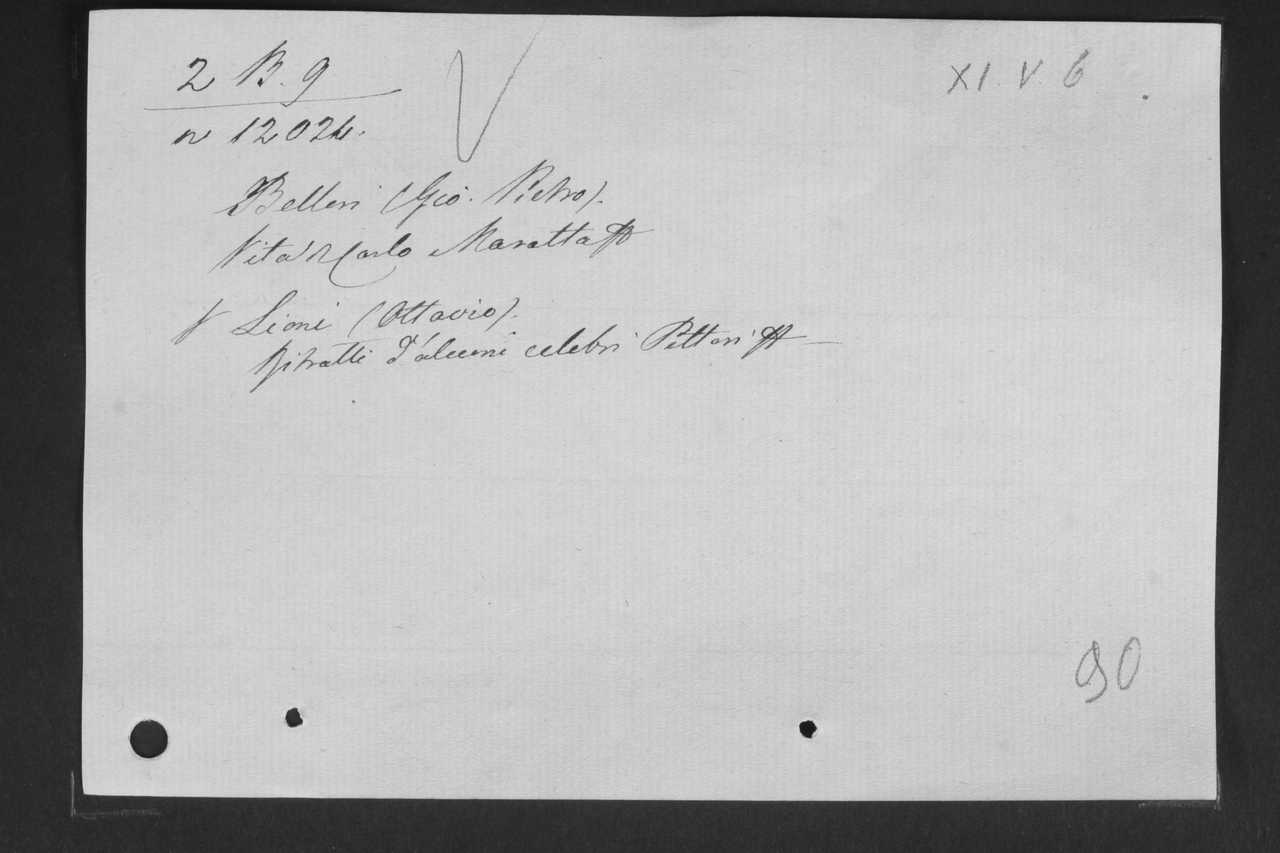 2 B. 9
XI. V. 6
n 12024.
Belleri (Gio. Pietro).
Vita di Carlo Maratta
Lioni (Ottavio).
Ritratti d'alcuni celebri Pittori
90